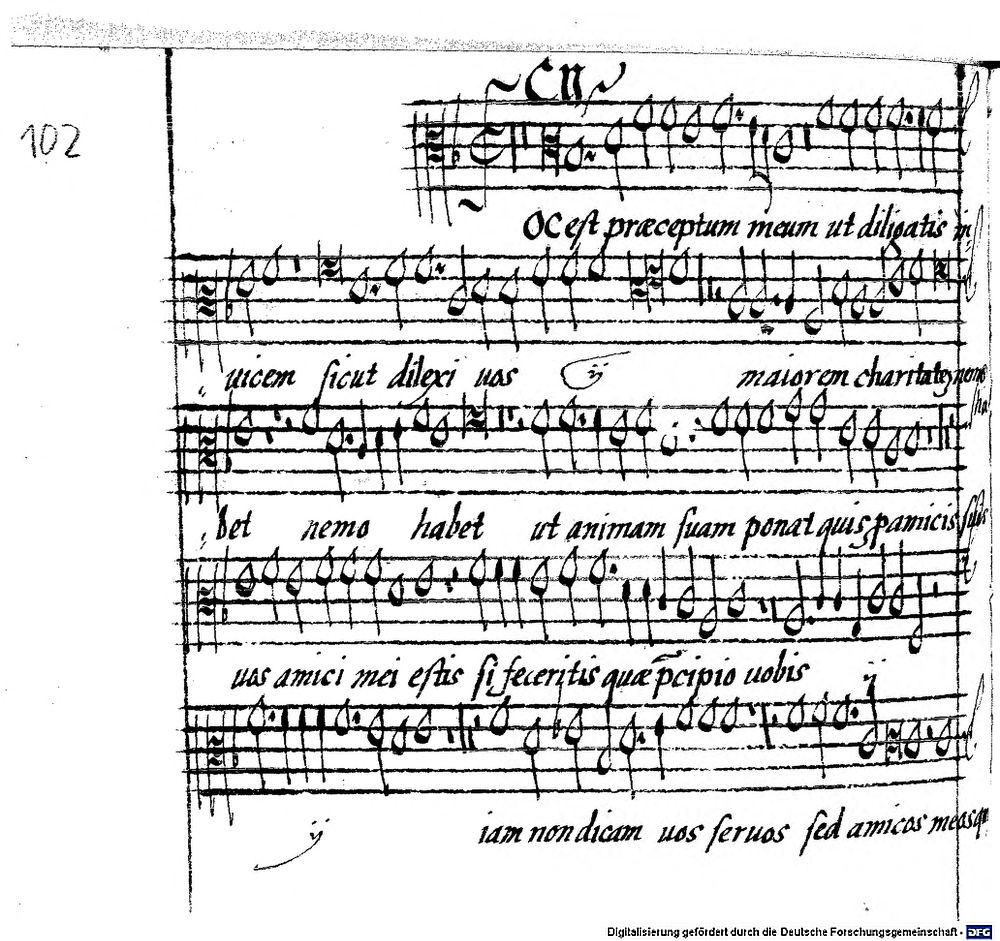 102
OC est præceptum meum ut diligatis in
uicem sicut dilexi uos ij maiorem charitatē nemo
ha
bet nemo habet ut animam suam ponat quis p amicis suis
uos amici mei estis si feceritis quæ p̄cipio uobis ij
ij iam non dicam uos seruos sed amicos meos q
Digitalisierung gefördert durch die Deutsche Forschungsgemeinschaft - DFG